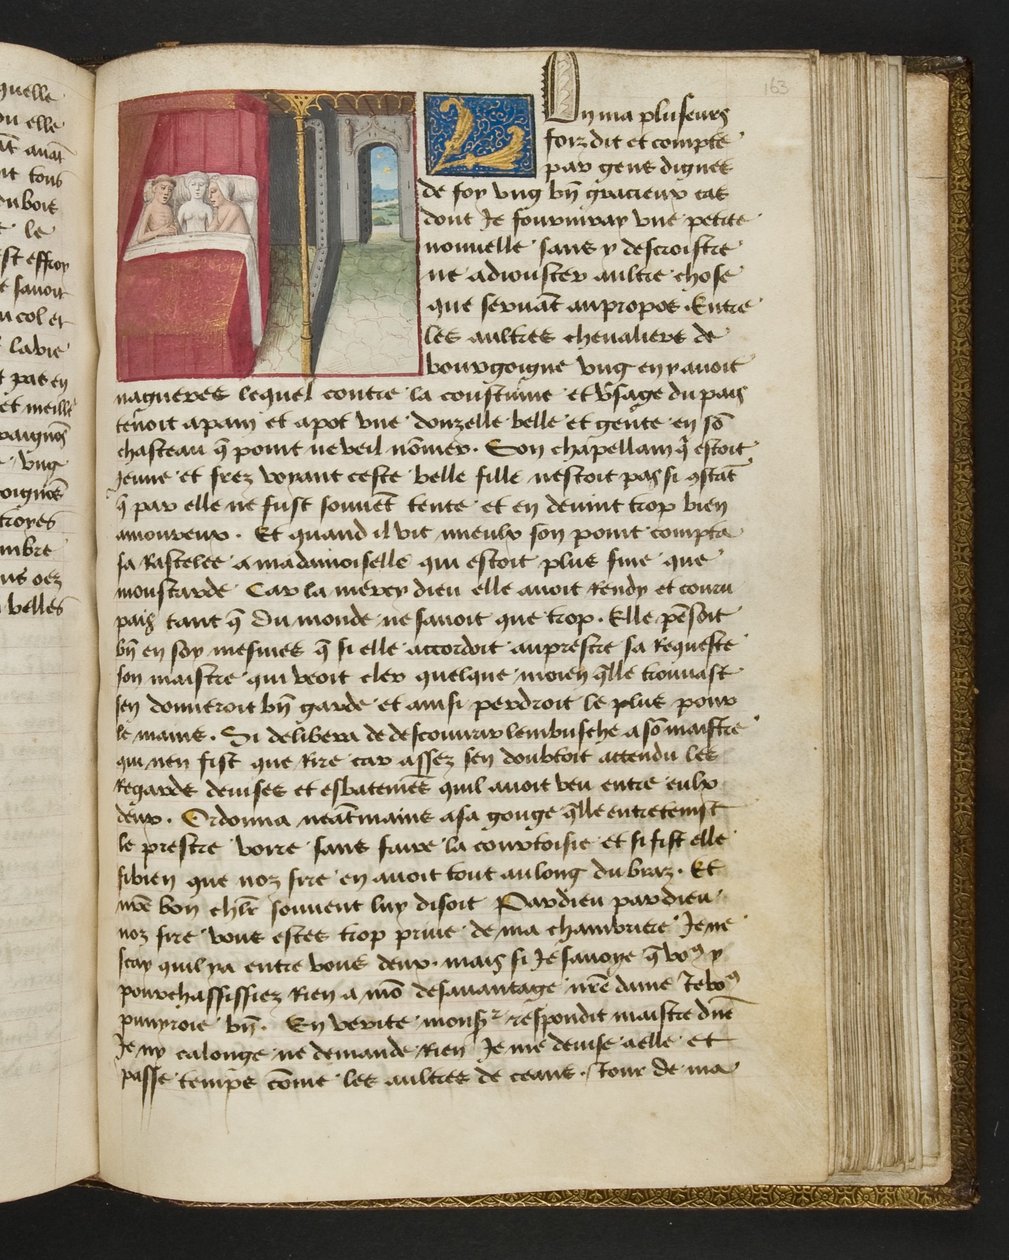 quelle
ou elle
tous
du bois
le
effroy
sauoir
col et
la vie
pas en
et meille
vng
troyes
oez
belles
163
On ma pluseurs
foiz dit et compte
par gens dignes
de foy vng bn̄ gracieux cas
dont Je fourniray vne petite
nouuelle sans y descroistre
ne adiouster aultre chose
que seruāt au propos . Entre
les aultres cheualiers de
bourgoigne vng en y auoit
nagueres lequel contre la coustume et vsage du pais
tenoit a pain et a pot vne donzelle belle et gente en sō
chasteau q̄ point ne veil nōmer . Son chapellain q̄ estoit
Jeune et frez voyant ceste belle fille nestoit pas si ꝯstāt
q̄ par elle ne fust souuēt tente et en deuint trop bien
amoureux . Et quand il vit mieulx son point compta
sa Rastelee a madamoiselle qui estoit plus fine que
moustarde Car la mercy dieu elle auoit Rendy et couru
pais tant q̄ du monde ne sauoit que trop . Elle pēsoit
bn̄ en soy mesmes q̄ si elle accordoit au prestre sa Requeste
son maistre qui veoit cler quelque moien qlle trouuast
sen donneroit bn̄ garde et ainsi perdroit le plus pour
le mains . Si delibera de descouurir lembusche a sō maistre
qui nen fist que Rire car assez sen doubtoit attendu les
Regards deuises et esbatemēs quil auoit veu entre eulx
deux . Ordonna neātmains a sa gouge qlle entretenist
le prestre voire sans faire la courtoisie et si fist elle
si bien que noz sire en auoit tout au long du bras . Et
nr̄e bon chlr̄ souuent luy disoit Pardieu pardieu
noz sire vous estes trop priue de ma chambriere Je ne
scay quil ya entre vous deux . mais si Je sauoye q̄ voꝰ y
pourchassissiez Rien a mō desauantage nr̄e dame Je voꝰ
puniroie bn̄ . En verite monsr respondit maistre dn̄e
Je ny calonge ne demande Rien Je me deuise a elle et
passe temps cōme les aultres de ceans . Jour de ma